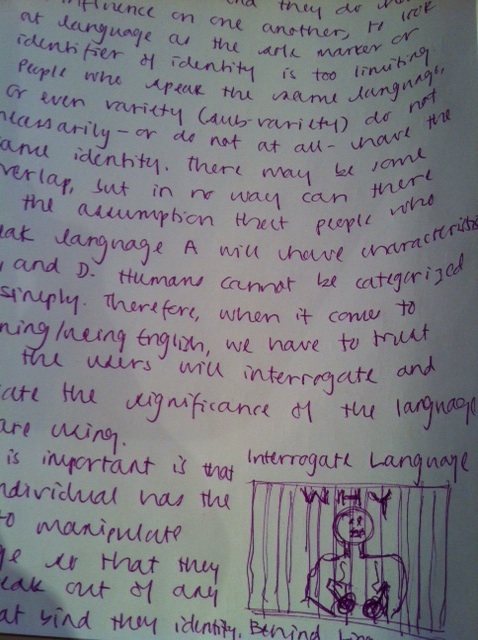 influence on one another, to look
at language as the sole marker or
identifier of identity is too limiting.
people who speak the same language,
or even variety (sub-variety) do not
necessarily - or do not at all - have the
same identity. There may be some
overlap, but in no way can there
the assumption that people who
eak language A will have characteristic
, and D. Humans cannot be categorized
simply. Therefore, when it comes to
ning/using English, we have to trust
the users will interrogate and
cate the significance of the language
are using.
is important is that
ndividual has the
to manipulate
ge so that they
eak out of any
at bind they identity.
Interrogate Language
WHY
Behind